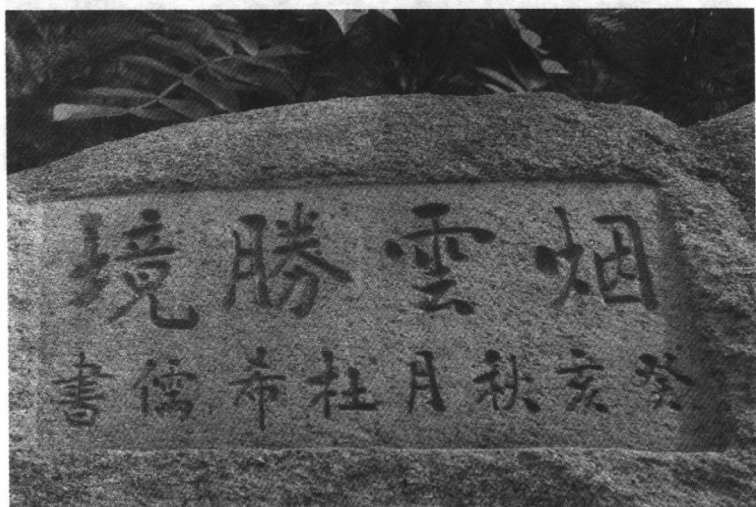 烟雲勝境
癸亥秋月杜希儒書